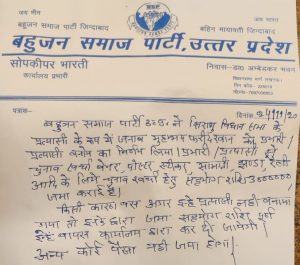 जय भीम
जय भारत
बहुजन समाज पार्टी जिन्दाबाद
बहिन मायावती जिन्दाबाद
BSP
बहुजन समाज पार्टी, उत्तर प्रदेश
सोपकीपर भारती
कार्यालय प्रभारी
निवास-डा० अम्बेडकर भवन
पत्रांक
दिनांक
बहुजन समाज पार्टी उ०प्र० ने विधान सभा के
प्रत्याशी के रूप में जनाब मुहम्मद को प्रभारी/
प्रत्याशी बनाने का निर्णय लिया। प्रभारी/प्रत्याशी ने
चुनाव खर्चा बैनर पोस्टर स्टीकर सामग्री झण्डा रैली
आदि के लिये चुनाव खर्चा हेतु सहयोग राशि
जमा कराई है।
किसी कारण वस अगर इन्हे प्रत्याशी नही बनाया
गया तो इनके द्वारा जमा सहयोग राशि पूर्ण
इन्हे वापस कार्यालय द्वारा कर दी जायेगी।
अन्य कोई पैसा नही जमा होगा।